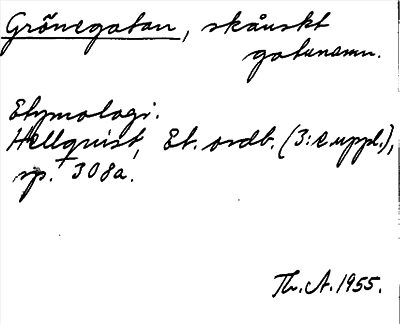 Grönegatan, skånskt
gatunamn.
Etymologi:
Hellquist, Et. ordb. (3:e uppl.),
sp. 308a.
Th. A. 1955.